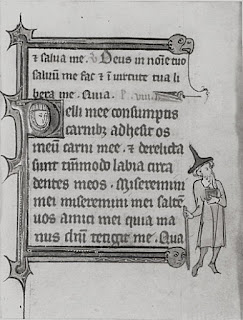 & salua me. V Deus in noīe tuo
saluū me fac & ī uirtute tua li
bera me. Qꝛia.
Pelli mee consumptis
carnibꝫ adhesit os
meū carni mee . & derelicta
sunt tūmodo labia circa
dentes meos . Miseremini
mei miseremini mei salté
uos amici mei quia ma
nus dn̄i tetigit me . Qua